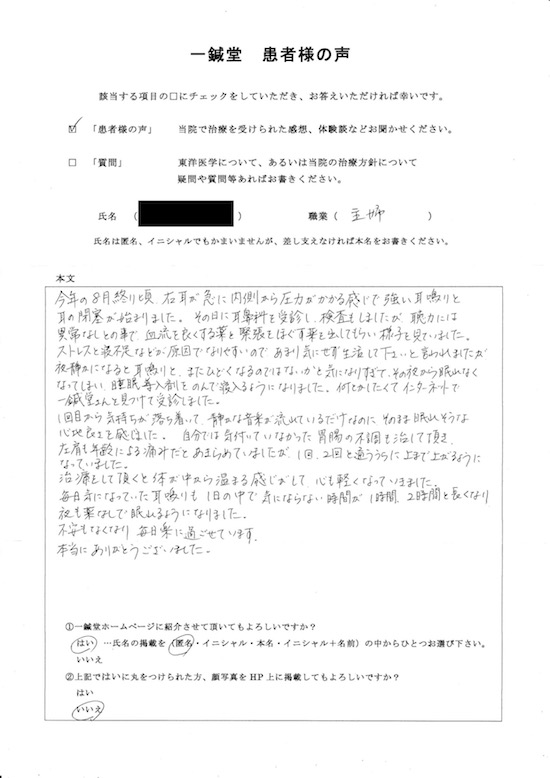 一鍼堂 患者様の声
該当する項目の□にチェックをしていただき、お答えいただければ幸いです。
☑ 「患者様の声」 当院で治療を受けられた感想、体験談などお聞かせください。
□ 「質問」 東洋医学について、あるいは当院の治療方針について
疑問や質問等あればお書きください。
氏名 ( ) 職業 ( 主婦 )
氏名は匿名、イニシャルでもかまいませんが、差し支えなければ本名をお書きください。
本文
今年の8月終り頃、右耳が急に内側から圧力がかかる感じで強い耳鳴りと
耳の閉塞が始まりました。その日に耳鼻科を受診し、検査もしましたが、聴力には
異常なしとの事で、血流を良くする薬と緊張をほぐす薬を出してもらい様子を見ていました。
ストレスと寝不足などが原因でなりやすいので あまり気にせず生活して下さいと言われましたが
夜静かになると耳鳴りと、またひどくなるのではないかと気になりすぎて、その夜から眠れなく
なってしまい、睡眠導入剤をのんで寝入るようになりました。何とかしたくてインターネットで
一鍼堂さんを見つけて受診しました。
1回目から気持ちが落ち着いて、静かな音楽が流れているだけなのに そのまま眠れそうな
心地良さを感じました。 自分では気付いていなかった 胃腸の不調も治して頂き、
左肩も年齢による痛みだとあきらめていましたが、1回、2回と通ううちに上まで上がるように
なっていました。
治療をして頂くと体が中から温まる感じがして、心も軽くなっていきました。
毎日気になっていた耳鳴りも 1日の中で 気にならない時間が 1時間、2時間と長くなり
夜も薬なしで眠れるようになりました。
不安もなくなり 毎日楽に過ごせています。
本当にありがとうございました。
①一鍼堂ホームページに紹介させて頂いてもよろしいですか？
はい …氏名の掲載を（匿名・イニシャル・本名・イニシャル＋名前）の中からひとつお選び下さい。
いいえ
②上記ではいに丸をつけられた方、顔写真をHP上に掲載してもよろしいですか？
はい
いいえ